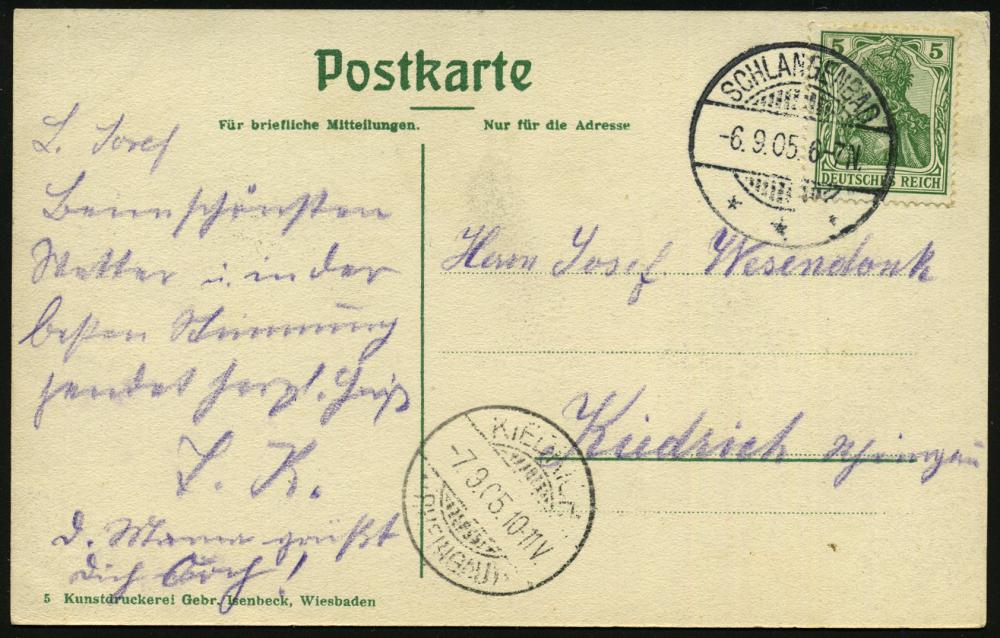 Postkarte
Für briefliche Mitteilungen.
Nur für die Adresse
L. Josef
Beim schönsten
Wetter u. in der
besten Stimmung
sendet herzl. Gruß
J. K.
d. Mama grüßt
Dich auch!
5 Kunstdruckerei Gebr. Isenbeck, Wiesbaden
5 5
DEUTSCHES REICH
SCHLANGENBAD
-6.9.05. 6-7V.
Herrn Josef Wesendonk
Kiedrich Rheingau
KIEDRICH
-7.9.05.10-11V.
(RHEINGAU)